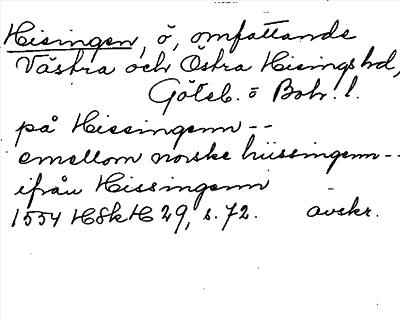 Hisingen, ö, omfattande
Västra och Östra Hisings hd,
Göteb. o Boh. l.
på Hissingenn --
emellom norske hiissingenn --
ifrån Hissingenn
1554 HSkH 29, s. 72. avskr.